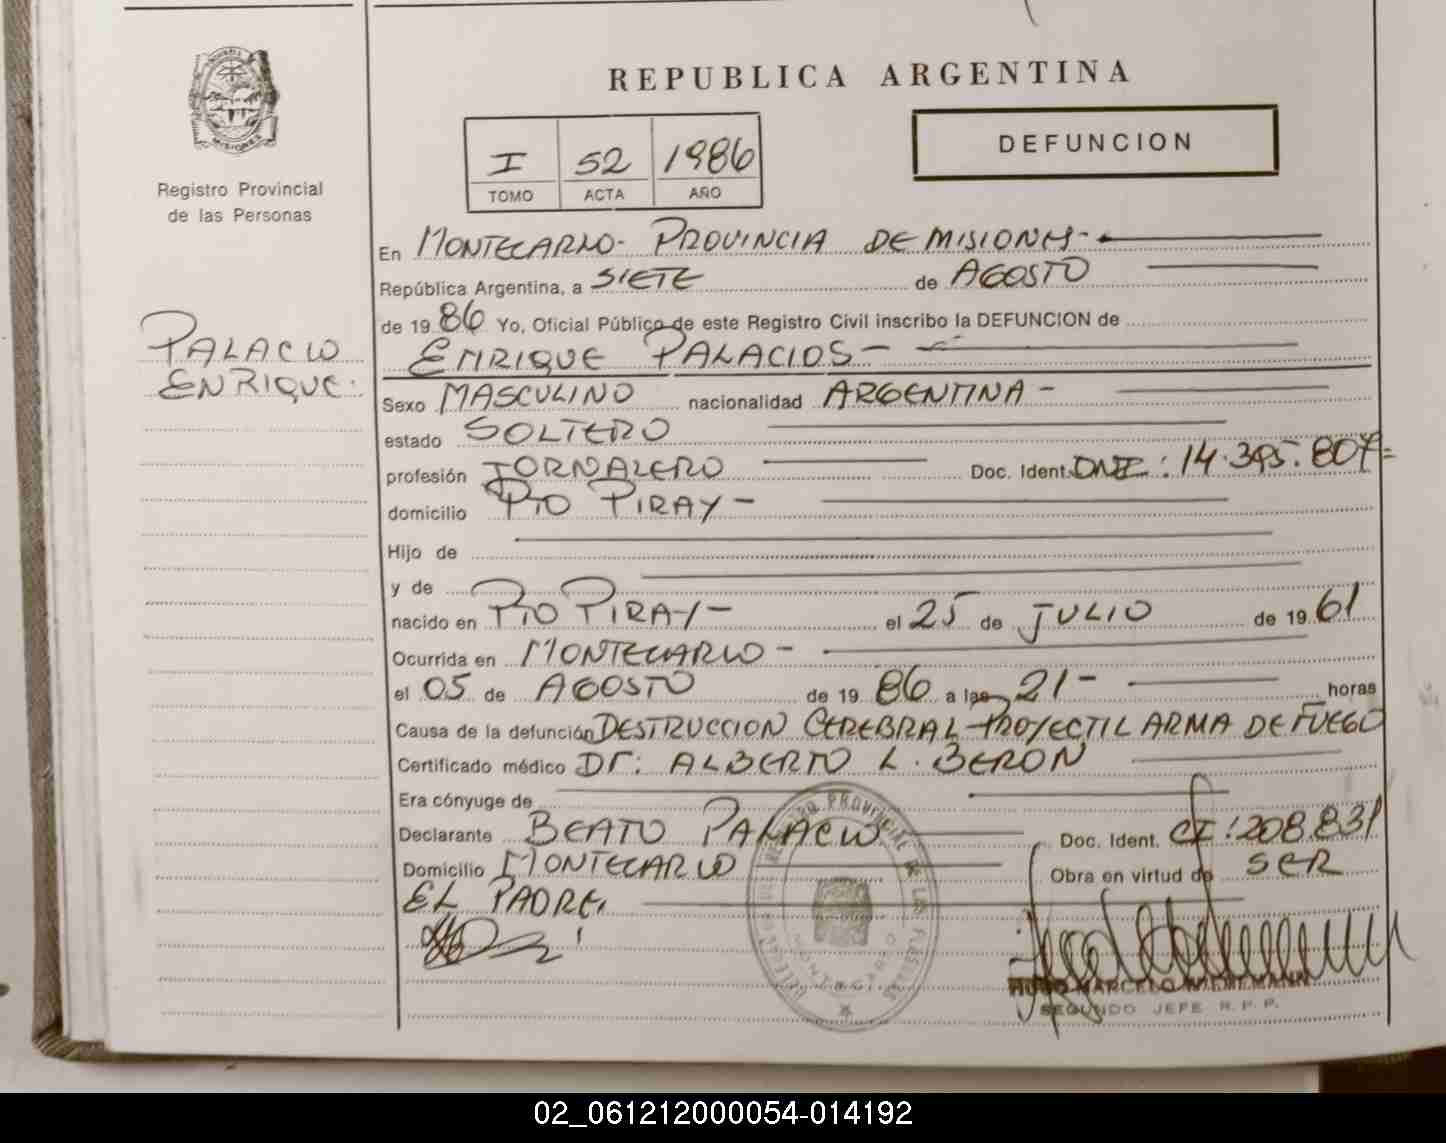 REPUBLICA ARGENTINA
MISIONES
Registro Provincial
de las Personas
I 52 1986
TOMO ACTA AÑO
DEFUNCION
PALACIO
ENRIQUE.
En MONTECARLO- PROVINCIA DE MISIONES-
República Argentina, a SIETE de AGOSTO
de 1986 Yo, Oficial Público de este Registro Civil inscribo la DEFUNCION de
ENRIQUE PALACIOS-
Sexo MASCULINO nacionalidad ARGENTINA-
estado SOLTERO
profesión JORNALERO Doc. Ident. DNI: 14.395.807=
domicilio PTO PIRAY-
Hijo de
y de
nacido en PTO PIRAY- el 25 de JULIO de 1961
Ocurrida en MONTECARLO-
el 05 de AGOSTO de 1986 a las 21- horas
Causa de la defunción DESTRUCCION CEREBRAL-PROYECTIL ARMA DE FUEGO
Certificado médico Dr: ALBERTO L. BERON
Era cónyuge de
Declarante BEATO PALACIO Doc. Ident. CI: 208.831
Domicilio MONTECARLO Obra en virtud de SER
EL PADRE,
MONTECARLO
SEGUNDO JEFE R. P. P.
02_061212000054-014192